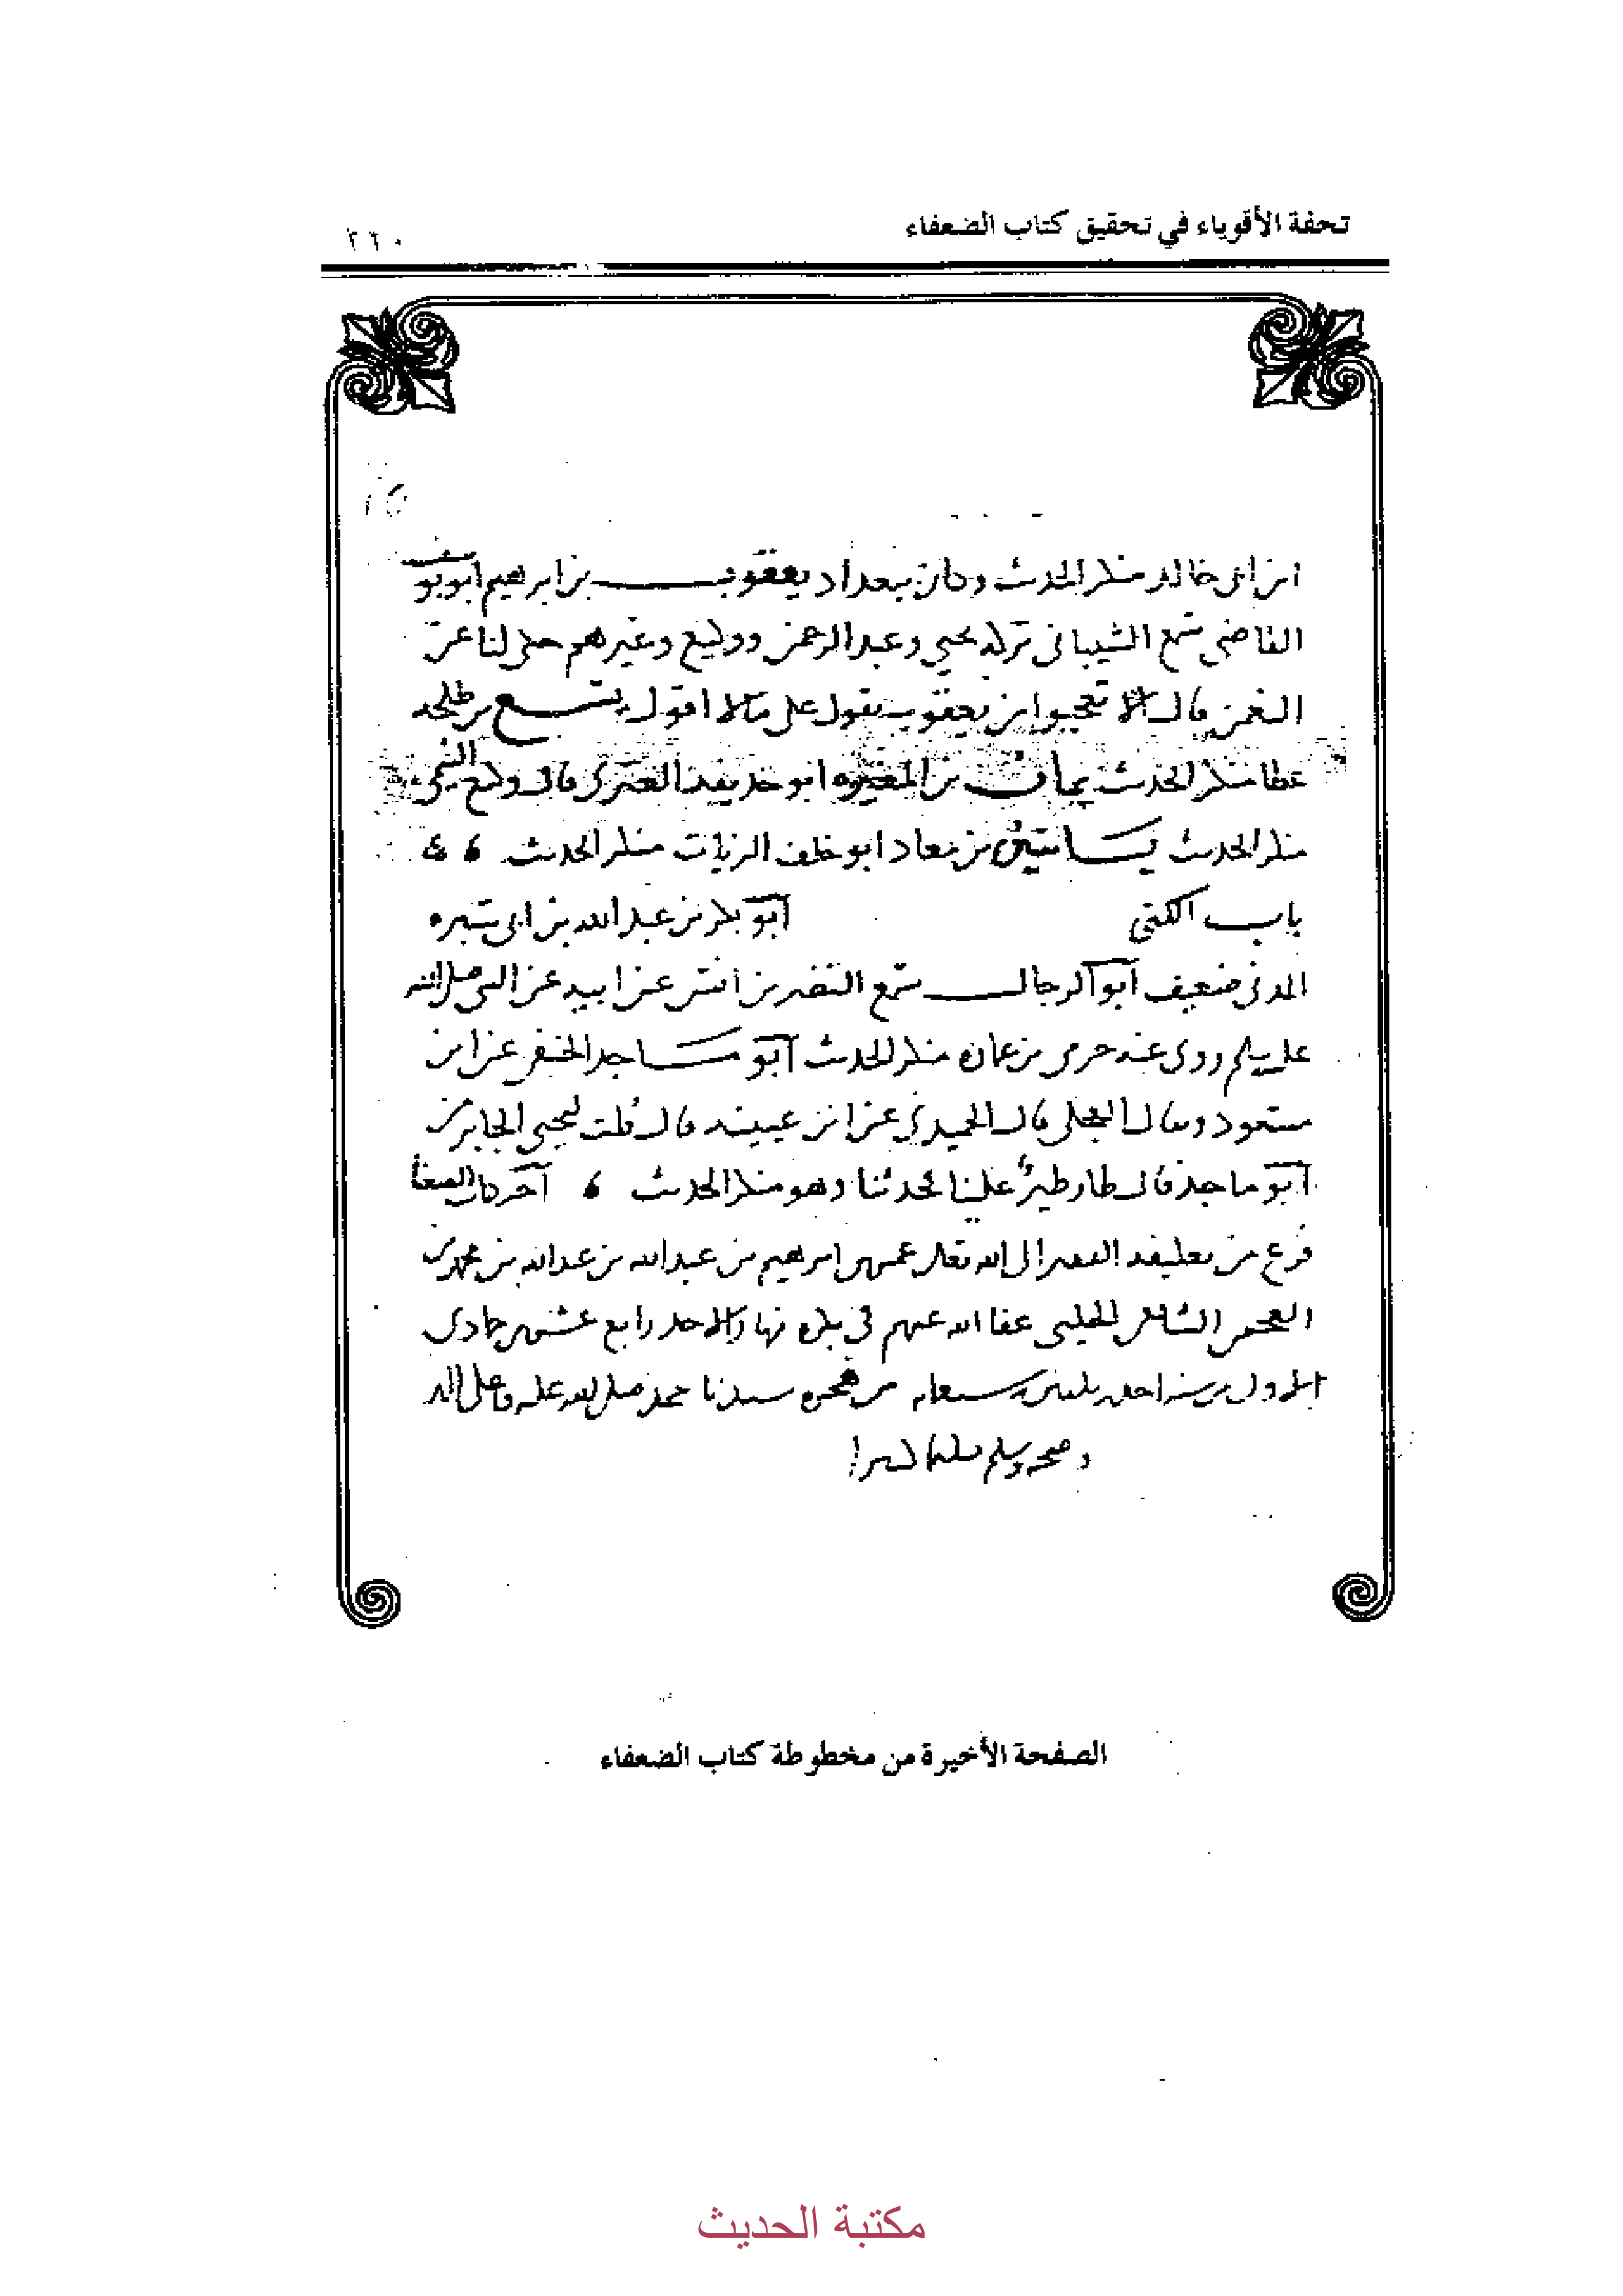 تحفة الأقوياء في تحقيق كتاب الضعفاء
٢٦٠
ابن ابى خالد منكر الحدث وكان ببغداد يعقوب بن ابرهيم ابو يو
القاضى سمع الشيبانى تركه يحيى وعبد الرحمن ووكيع وغيرهم حكى لنا عن
النعمن قال الا تعجبوا من يعقوب يقول على ما لا اقول يسع بن طلحه
عطا منكر الحدث يمان بن المغيره ابو حذيفه العنزى قال وكيع التيمى
منكر الحدث ياسين بن معاد ابو خلف الزيات منكر الحدث
باب الكنى ابو بكر بن عبد الله بن ابى سبره
المدنى ضعيف ابو الرجال سمع النضر بن انس عن ابيه عن النبى صلى الله
عليه وسلم روى عنه حرمى بن عماره منكر الحدث ابو ماجد الحنفى عن ابن
مسعود وقال العجلى قال الحميدى عن ابن عيينه قال قلت ليحيى الجابر من
ابو ماجد قال طار طرأ علينا فحدثنا وهو منكر الحدث اخر كتاب الضعفا
فرغ من تعليقه الفقير الى الله تعالى ابرهيم بن عبد الله بن عبد الله بن محمد بن
العجمى الشافعى الحلبى عفا الله عنهم فى بكره نهار الاحد رابع عشر جمادى
الاول من سنه احدى سبعمايه من هجره سيدنا محمد صلى الله عليه وعلى اله
وصحبه وسلم تسليما كثيرا
الصفحة الأخيرة من مخطوطة كتاب الضعفاء
مكتبة الحديث